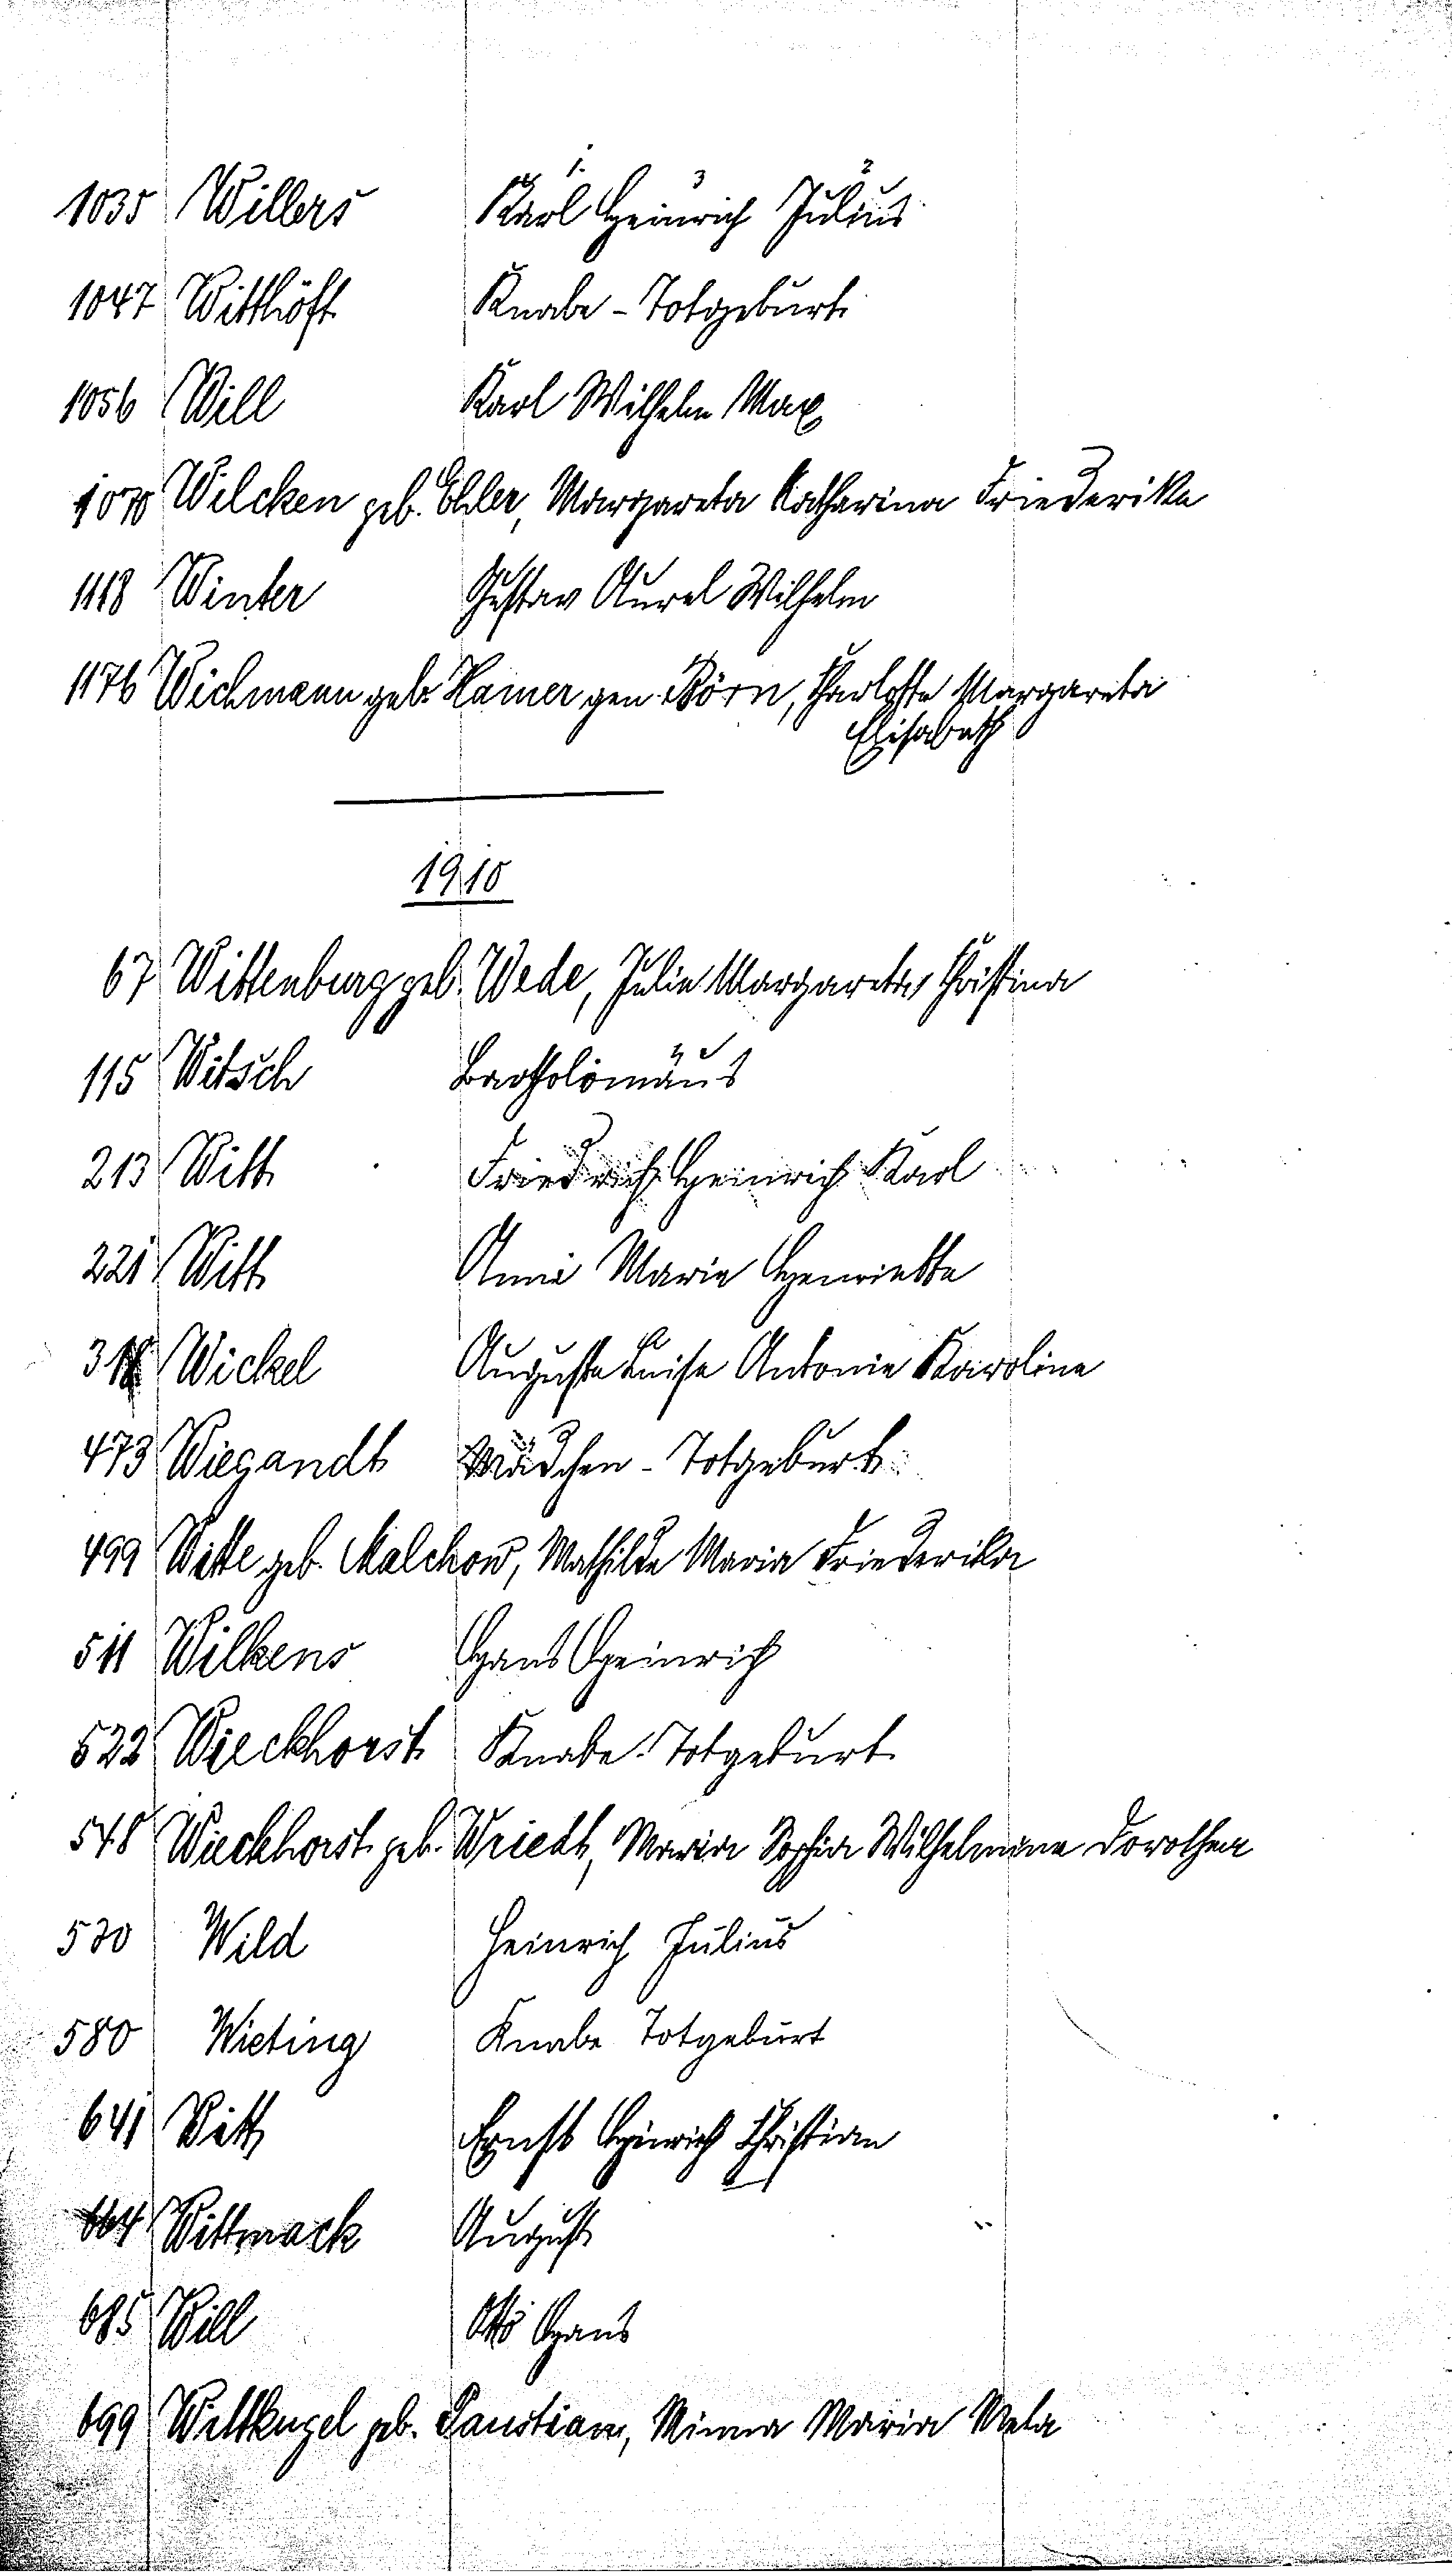 1. 3 2
1035 Willers Karl Heinrich Julius
1047 Witthöft Knabe - Totgeburt
1056 Will Karl Wilhelm Max
1070 Wilcken geb. Ehler, Margareta Katharina Friederike
1118 Winter Gustav Aurel Wilhelm
1176 Wichmann geb. Hamer gen. Börn, Charlotte Margareta
Elisabeth
1910
67 Wittenburg geb. Wede, Julie Margaretha Christina
115 Witsch Bartholomäus
213 Witt Friedrich Heinrich Karl
221 Witt Anni Marie Henriette
318 Wickel Auguste Luise Antonie Karoline
473 Wiegandt Mädchen - Totgeburt
499 Witte geb. Malchow, Mathilde Maria Friederika
511 Wilkens Hans Heinrich
522 Wieckhorst Knabe-Totgeburt
548 Wieckhorst geb. Wriedt, Maria Sophia Wilhelmine Dorothea
570 Wild Heinrich Julius
580 Wieting Knabe Totgeburt
641 Witt Ernst Hinrich Christian
664 Wittmack August
685 Will Otto Hans
699 Wittkugel geb. Paustian, Minna Maria Meta